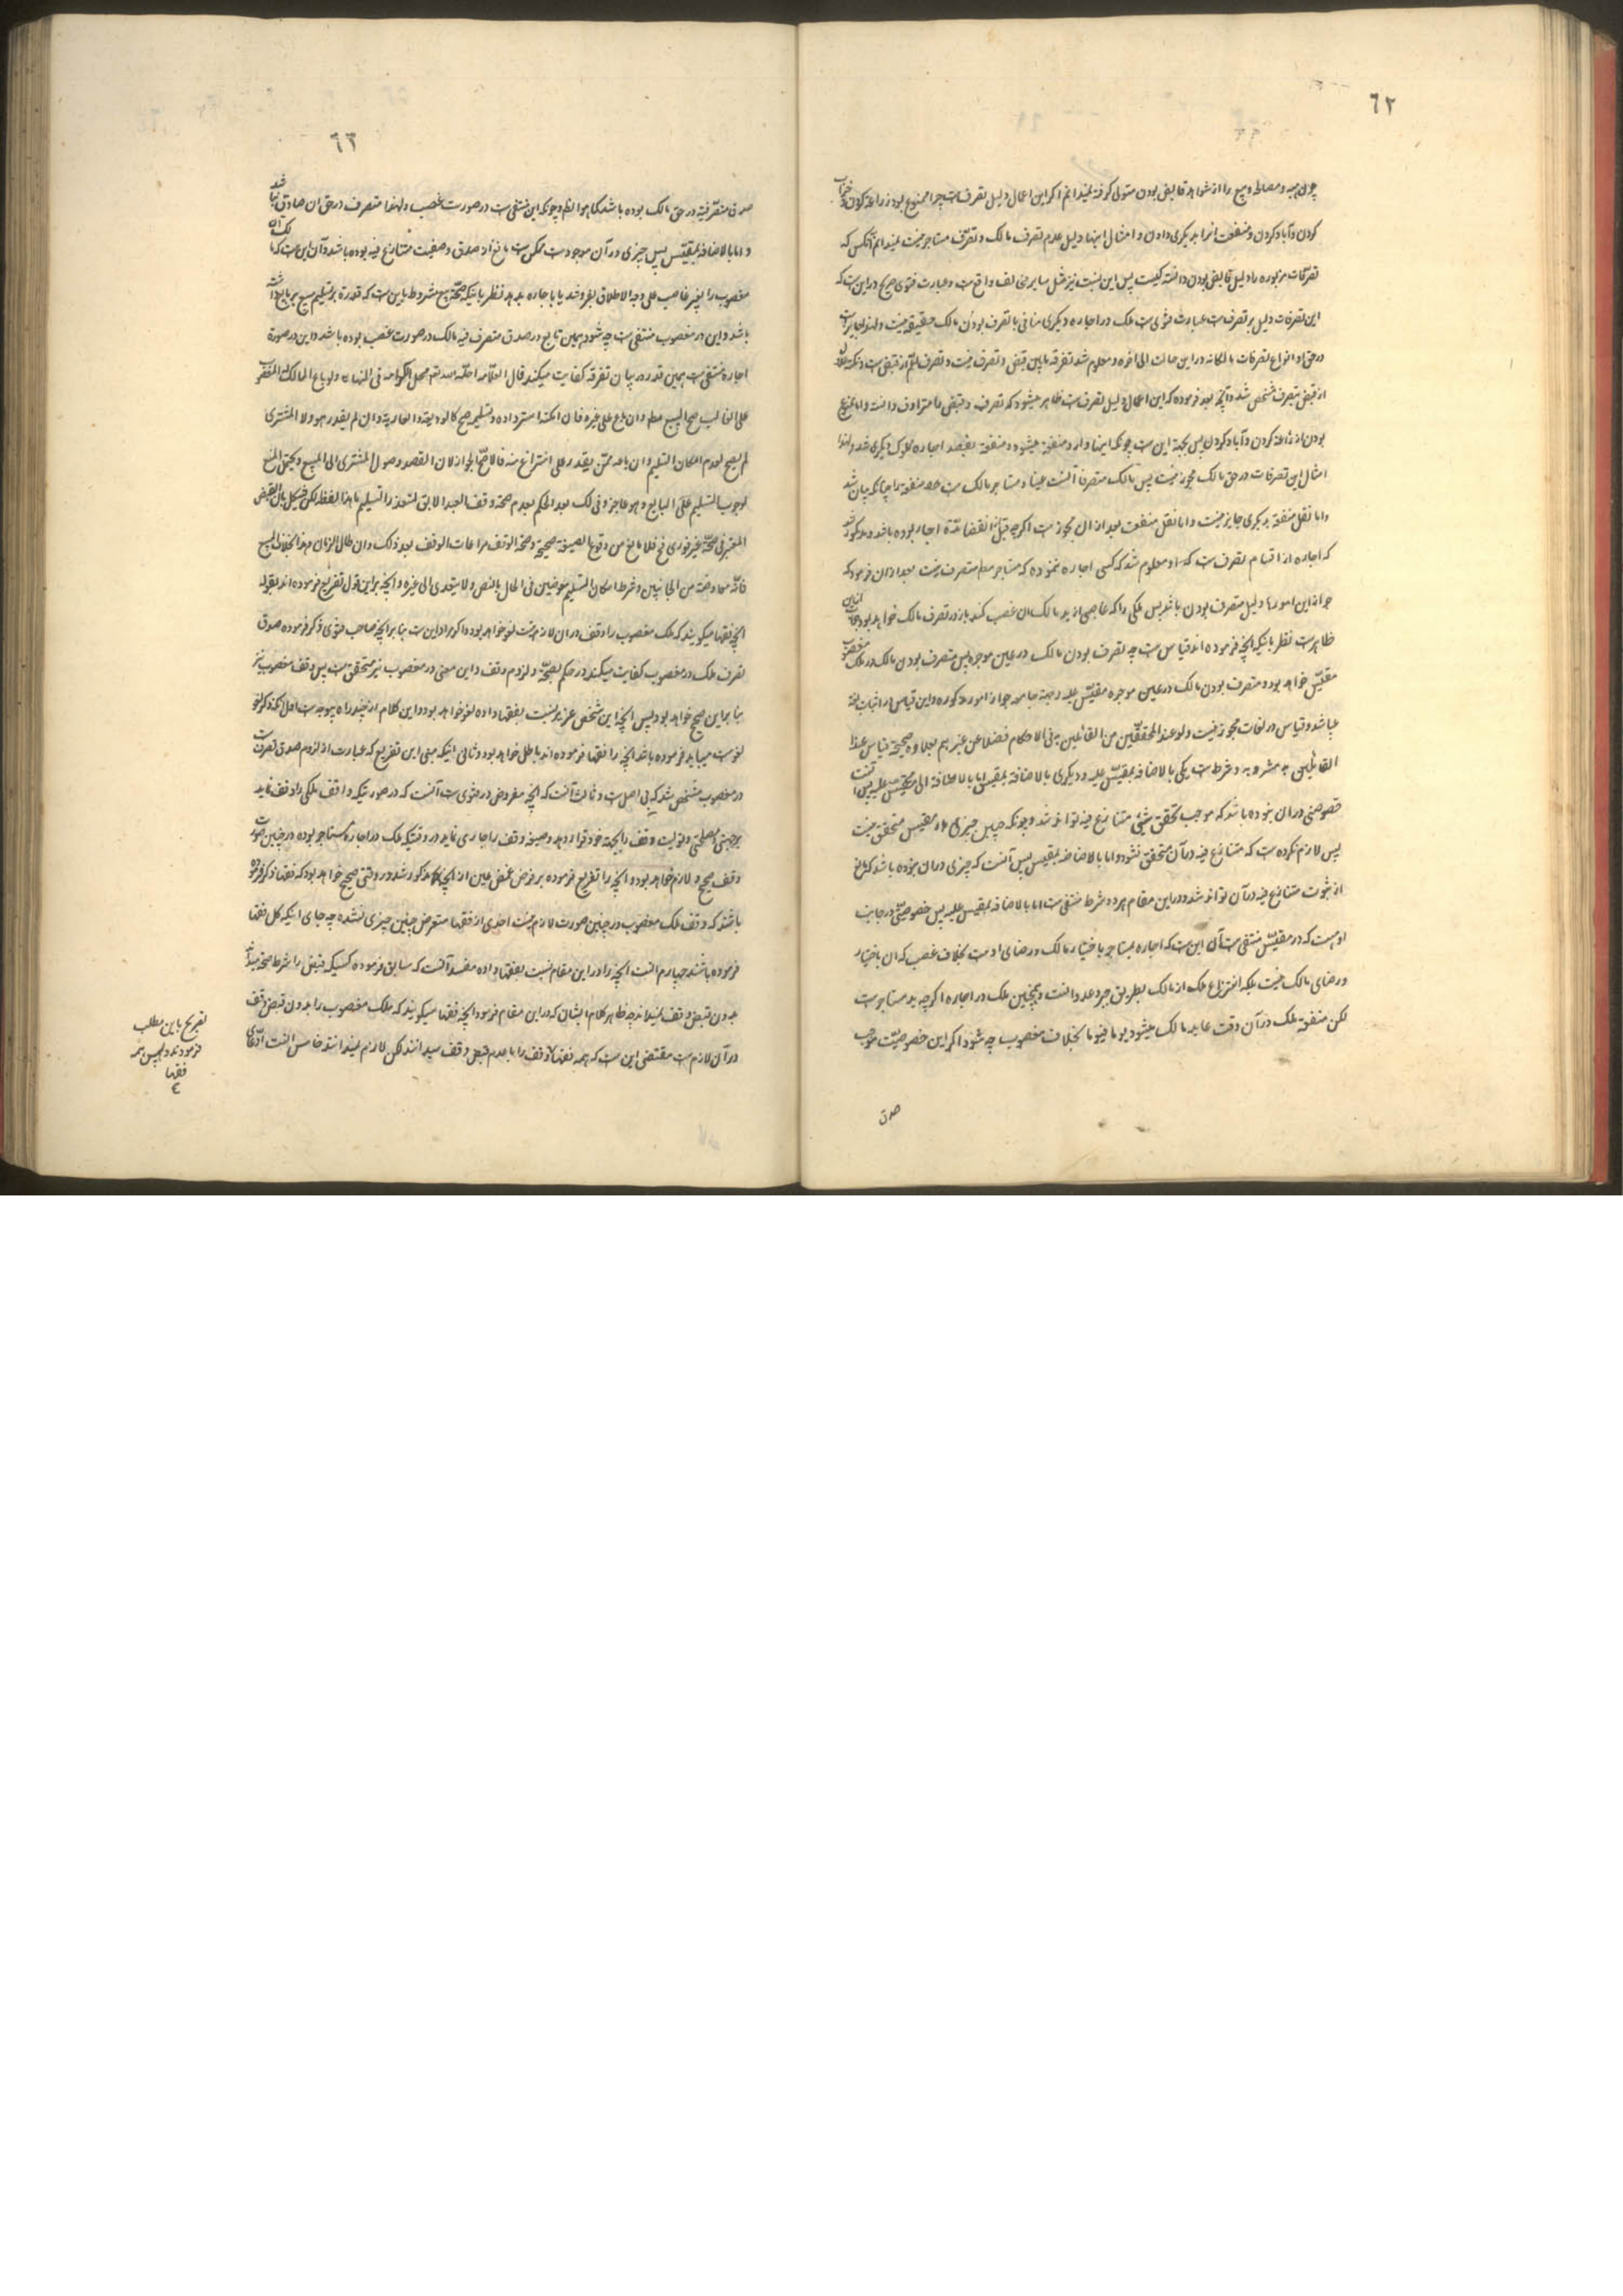 ٦٢
چون هبه و مصالحه و بیع را از شواهد قابض بودن متولی گرفته نمیدانم اگر این اعمال دلیل تصرفست چرا ممنوع بود زراعة کردن و
کردن و آباد کردن و منفعت انرا بدیگری دادن و امثال اینها دلیل عدم تصرف مالک و تصرف مستاجر نیست نمیدانم آنکس که
تصرفات مزبوره را دلیل قابض بودن دانسته کیست پس این نسبت نیز مثل سایر واقع است و عبارت فتوی صریح در این است که
این تصرفات دلیل بر تصرفست عبارت فتوی است ملک در اجاره دیگری منافی با تصرف بودن مالک حقیقة نیست و لهذا جایز است
در حق او انواع تصرفات مالکانه در این حالت الی اخره و معلوم شد تفرقه مابین قبض و تصرف نیست و تصرف اعم از قبض است
از قبض بتصرف مشخص شد و آنچه بعد فرموده که این اعمال دلیل تصرفست ظاهر میشود که تصرف و قبض را مترادف دانسته و اما ممنوع
بودن از زراعة کردن و آباد کردن پس بجهة این است چونکه اینها وارد منفعة میشود و منفعة بقصد اجاره ملوک دیگری شده و لهذا
امثال این تصرفات در حق مالک مجوز نیست پس مالک متصرفا آنست عینا و مستاجر مالک است منفعة را چنانکه بیان شد
و اما نقل منفعة بدیگری جایز نیست و اما نقل منفعت بعد از ان مجوز است اگرچه قبل از انقضا مدة اجاره بوده باشد و مذکور شد
که اجاره از اقسام تصرف است که او معلوم شد که کسی اجاره ننموده که مستاجر مطلقا متصرف نیست بعد از ان فرموده که
جواز این امور را دلیل متصرف بودن باشد پس ملکی را که غاصبی از ید مالک ان غصب کند باز در تصرف مالک خواهد بود
ظاهر است نظر باینکه آنچه فرموده اند قیاس است چه تصرف بودن مالک در عین موجره پس متصرف بودن مالک در ملک مغصوب
مقیس خواهد بود و متصرف بودن مالک در عین موجره مقیس علیه و جهة جامعه جواز امور مذکوره و این قیاس در اثبات لغة
میباشد و قیاس در لغات مجوز نیست ولو عند المحققین من القائلین به فی الاحکام فضلا عن غیرهم بعلاوه صحیحة قیاس عند
القائلین به مشروط به دو شرط است یکی بالاضافه بمقیس علیه و دیگری بالاضافه بمقیس اما بالاضافة الی مقیس علیه پس آنست
خصوصیتی در ان نبوده باشد که موجب تحقق شیئی متنازع فیه تواند شد و چونکه چنین چیزی در مقیس متحقق نیست
پس لازم نکرده است که متنازع فیه در آن متحقق نشود و اما بالاضافه بمقیس پس آنست که چیزی در ان نبوده باشد که مانع
از ثبوت متنازع فیه در آن تواند شد و در این مقام هر دو شرط منتفی است اما بالاضافه بمقیس علیه پس خصوصیتی در جانب
او هست که در مقیس منتفی است آن این است که اجاره بمستاجر باختیار مالک و رضای او است بخلاف غصب که ان باختیار
و رضای مالک نیست بلکه انتزاع ملک از مالک بطریق جور و عدوانست و همچنین ملک در اجاره اگرچه بید مستاجر است
لکن منفعة ملک در آن وقت عاید مالک میشود یوما فیوما بخلاف مغصوب چه شود اگر این خصوصیت موجب
صدق
٦٣
صدق متصرفیة در حق مالک بوده باشد کما هو الظاهر و چونکه این منتفی است در صورت غصب و لهذا متصرف در حق ان صادق نباشد
و اما بالاضافه بمقیس پس چیزی در آن موجود است ممکن است مانع از صدق وصفیت متنازع فیه بوده باشد و آن این است که مالک
مغصوب را بغیر غاصب علی وجه الاطلاق بفروشد یا باجاره بدهد نظر باینکه صحة بیع مشروط باین است که قدرة بر تسلیم مبیع بر بایع داشته
باشد و این در مغصوب منتفی است چه شود همین مانع در صدق متصرف فیه مالک در صورت غصب بوده باشد و این در صورة
اجاره منتفی است همین قدر در بیان تفرقه کفایت میکند قال العلامه احله الله تعالی محل الکرامه فی النهایة ولو باع المالک المغصوب
علی الغاصب صح البیع مطلقا وان باع علی غیره فان امکنه استرداده و تسلیمه صح کالودیعة والعاریة وان لم یقدر هو ولا المشتری
لم یصح لعدم امکان التسلیم وان باعه ممن یقدر علی انتزاعه منه فالاصح الجواز لان القصد وصول المشتری الی المبیع ویحتمل المنع
لوجوب التسلیم علی البایع وهو عاجز وفی ذلک بعد الحکم بعدم صحة وقف العبد الابق لتعذر التسلیم ما هذا لفظه لکن یشکل بان القبض
المعتبر فی صحة غیر فوری فح فلا مانع من وقوع الصیغة صحیحة وصحة الوقف مراعات الوقف بعد ذلک وان طال الزمان وهذا بخلاف البیع
فانه معاوضة من الجانبین وشرط امکان التسلیم للعوضین فی الحال بالنص ولا یتعدی الی غیره و آنچه بر این قول تفریع فرموده اند بقوله
آنچه فقها میگویند که ملک مغصوب را وقف در ان لازم نیست لغو خواهد بود و اگر مراد این است بنابر آنچه صاحب فتوی ذکر فرموده صدق
تصرف ملک در مغصوب کفایت میکند در حکم بصحة و لزوم وقف و این معنی در مغصوب نیز متحقق است پس وقف مغصوب نیز
بنابراین صحیح خواهد بود پس آنچه این شخص عزیز نسبت بفقها داده لغو خواهد بود و این کلام از چند راه بیوجه است اول آنکه ذکر لغو
لغوست میباید فرموده باشد آنچه را فقها فرموده اند باطل خواهد بود و ثانی اینکه مبنی این تفریع که عبارت از لزوم صدق تصرفست
در مغصوب مشخص شد که بی اصل است و ثالث آنست که آنچه مفروض در فتوی است آنست که در صورتیکه واقف ملکی را وقف نماید
بر جهتی و مصلحتی و تولیت وقف را بجهة خود قرار دهد و صیغه وقف را جاری نماید در وقتیکه ملک در اجاره مستاجر بوده در چنین صورت
وقف صحیح و لازم خواهد بود و آنچه را تفریع فرموده بر فرض غمض عین از آنچه مذکور شد در وقتی صحیح خواهد بود که فقها ذکر فرموده
باشند که وقف ملک مغصوب در چنین صورت لازم نیست احدی از فقها متعرض چنین چیزی نشده چه جای اینکه کل فقها
فرموده باشند چهارم آنست آنچه را در این مقام نسبت بفقها داده مفسد آنست که سابق فرموده کسیکه قبض را شرط صحة میداند
بدون قبض وقف نمیداند چه ظاهر کلام ایشان که در این مقام فرمود آنچه فقها میگویند که ملک مغصوب را بدون قبض وقف
در آن لازم است مقتضی این است که همه فقها وقف را با عدم قبض وقف میدانند لکن لازم نمیدانند خامس آنست ادعای
تصریح باین مطلب
فرمودند و پس همه
فقها